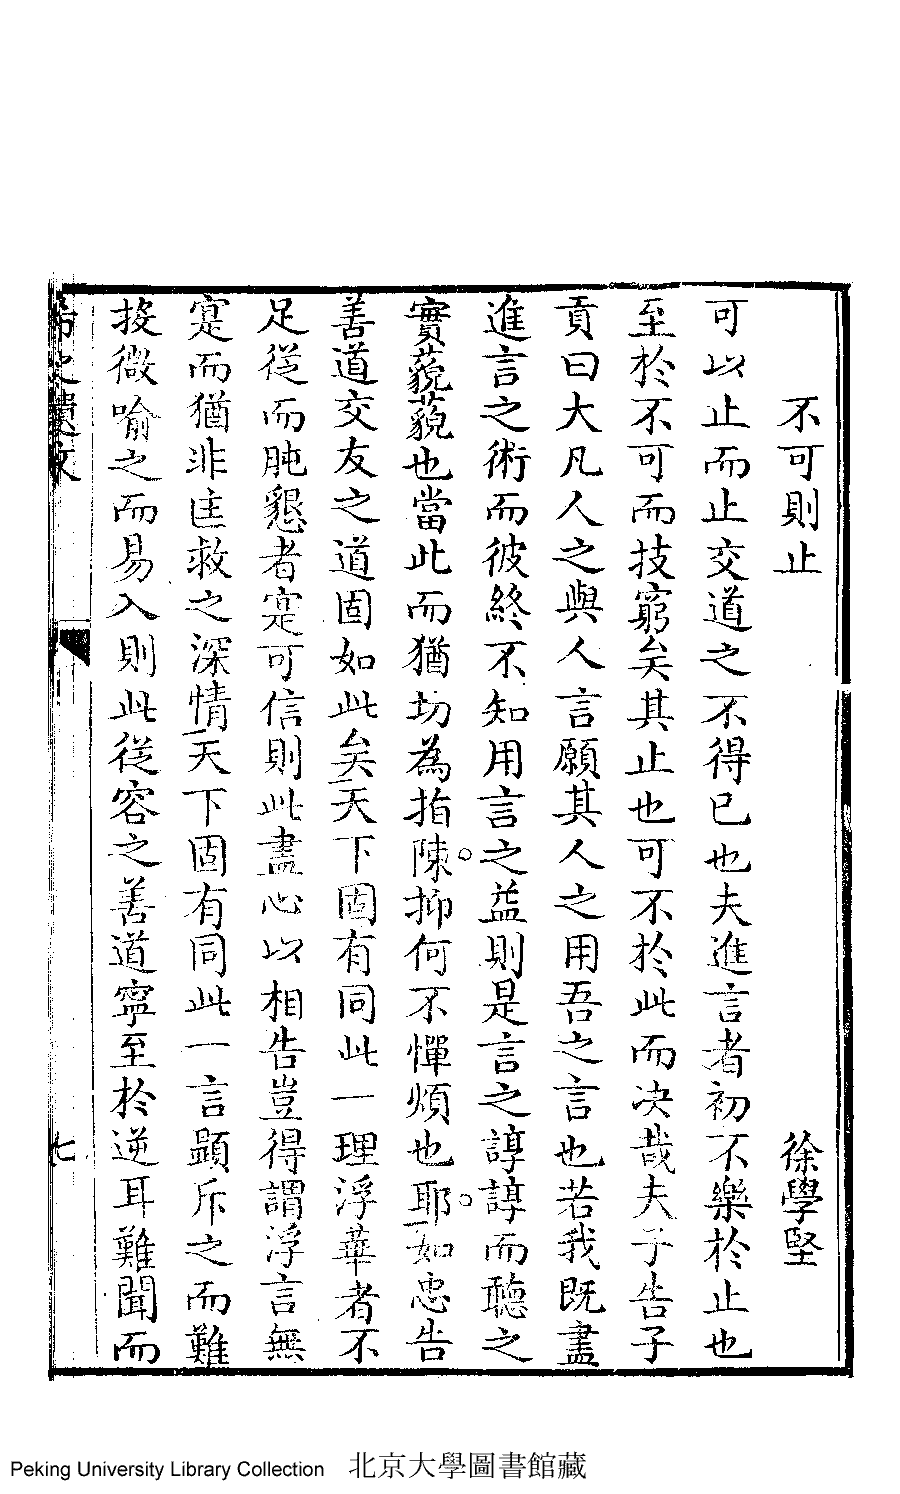 不可則止　徐學堅
可以止而止交道之不得已也夫進言者初不樂於止也
至於不可而技窮矣其止也可不於此而决哉夫子告子
貢曰大凡人之與人言願其人之用吾之言也若我既盡
進言之術而彼終不知用言之益則是言之諄諄而聽之
實藐藐也當此而猶切為指陳抑何不憚煩也耶如忠告
善道交友之道固如此矣天下固有同此一理浮華者不
足從而肫懇者寔可信則此盡心以相告豈得謂浮言無
寔而猶非匡救之深情天下固有同此一言顯斥之而難
投微喻之而易入則此從容之善道寧至於逆耳難聞而
遺文 七
Peking University Library Collection 北京大學圖書館藏